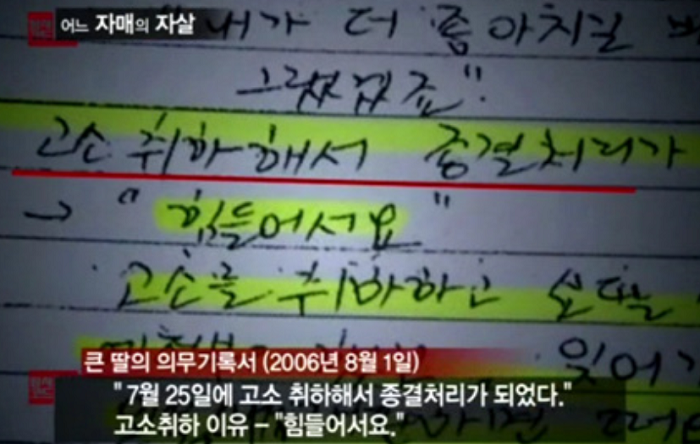 어느 자매의 자살
"내가 더 좋아지길
그랬겠죠".
고소 취하해서 종결처리가
→ "힘들어서요"
고소를 취하하고
잊어
큰 딸의 의무기록서 (2006년 8월 1일)
" 7월 25일에 고소 취하해서 종결처리가 되었다."
고소취하 이유 – "힘들어서요."